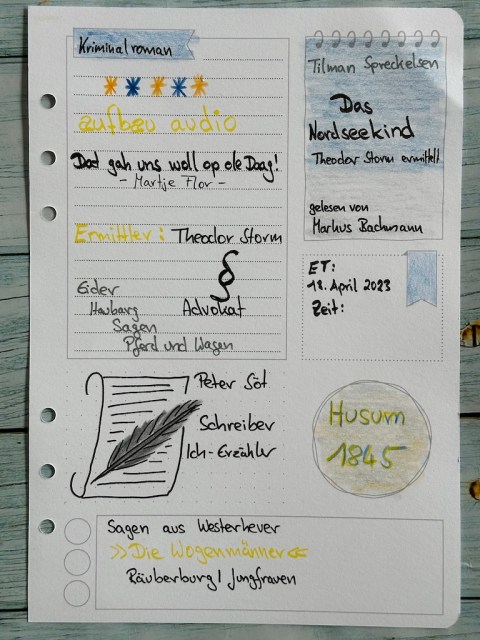 Kriminalroman
aufbau audio
Dat gah uns woll op ole Daag!
- Martje Flor -
Ermittler: Theodor Storm
§
Eider
Haubarg
Advokat
Sagen
Pferd und Wagen
Tilman Spreckelsen
Das
Nordseekind
Theodor Storm ermittelt
gelesen von
Markus Bachmann
ET:
18. April 2023
Zeit:
Peter Söt
Schreiber
Ich-Erzähler
Husum
1845
Sagen aus Westerhever
»Die Wogenmänner«
Räuberburg / Jungfrauen